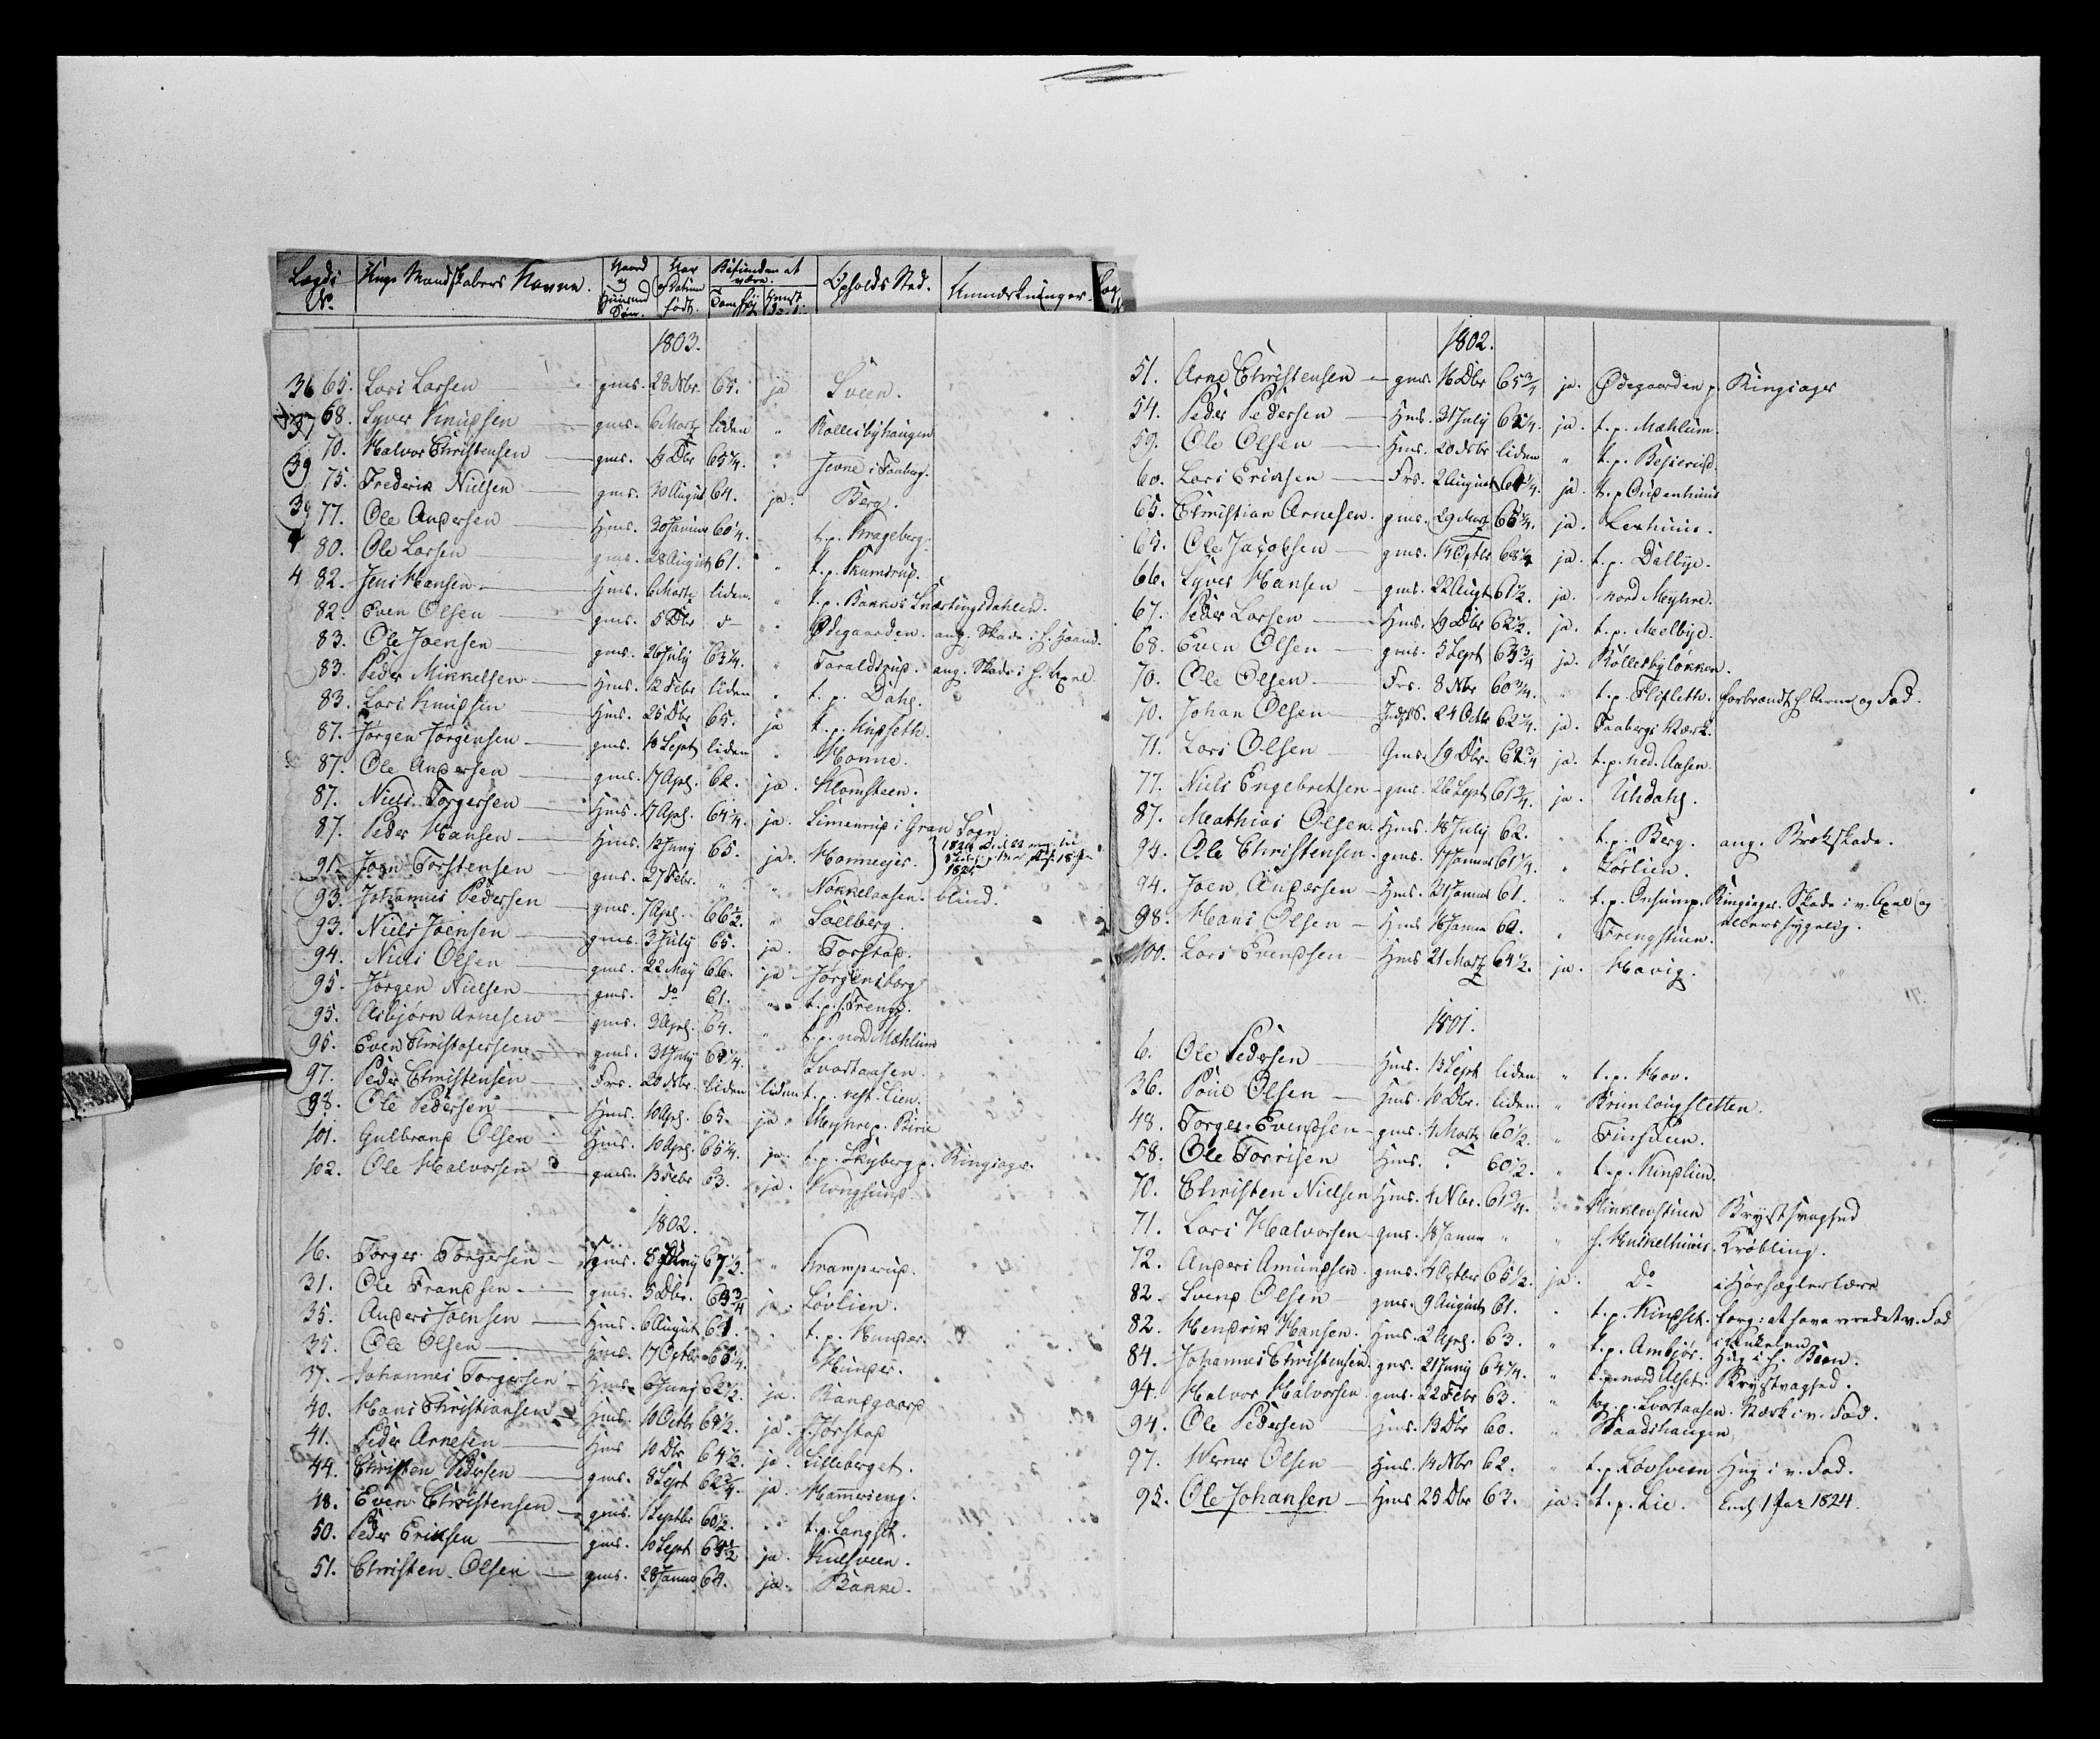 Lægds No. Unge Mandskabers Navne. Gaard og Huusmd Søn. Naar og Datum født. Befunden at være. Opholds Sted. Anmærkninger.
1803.
65. Lars Larsen gms. 28 Nbr. 65. ja Sveen.
68. Syver Knudsen gms. 6 Martz liden " Rollesbyhaugen
70. Halvor Christensen gms. 9 Dbr 65 1/4. " Jevne i Faaberg.
75. Frederik Nielsen gms. 30 August 64. ja. Berg.
77. Ole Andersen Hms. 30 Januar 60 1/4. " t. p. Krageberg.
80. Ole Larsen gms. 28 August 61. " t. p. Skumsrud.
82. Jens Hansen Hms. 6 Martz liden. " t. p. Bakken Snertingsdahlen.
82. Even Olsen gms. 5 Dbr " Ødegaarden. ang. Skade i h. Haand.
83. Ole Joensen gms. 26 July 63 1/4. " Taraldsrud. ang. Skade i h. Axel.
83. Peder Mikkelsen Hms. 12 Febr liden " t. p. Dahl.
83. Lars Knudsen Hms. 25 Dbr 65. ja t. p.
87. Jørgen Jørgensen gms. 18 Sept liden " Honne.
87. Ole Andersen gms. 17 Apl. 62. ja. Klomsteen.
87. Niels Torgersen Hms. 17 Apl. 64 1/4. ja. i Gran Sogn
87. Peder Hansen Hms. 12 Juny 65. ja. Honneejer.
91. Joen Torstensen gms. 27 Febr. " " Nøkkelaasen. blind.
93. Johannes Pedersen gms. 7 Apl. 66 1/2. " Solberg.
93. Niels Joensen gms. 3 July 65. ja. Torstad.
94. Niels Olsen gms. 22 May 66. ja Jørgensborg
95. Jørgen Nielsen gms. do 61. " t. p. s. Freng
95. Asbjørn Arnesen gms. 3 Apl. 64. " t. p. nord Mæhlum
95. Even Christofersen gms. 31 July 61 1/4. " Svartaasen.
97. Peder Christensen Frs. 20 Nbr. liden liden t. p. vest. Lien.
98. Ole Pedersen Hms. 10 Apl. 65. ja. Myhre p. Birie
101. Gulbrand Olsen Hms. 10 Apl. 65 1/4. ja. t. p. Skyberg p. Ringsager.
102. Ole Halvorsen gms. 13 Febr 63. ja. Kongsund.
1802.
16. Torger Torgersen gms. 8 67 1/2. " Kramperud.
31. Ole Frandsen gms. 5 Dbr. 63 3/4 ja. Lövlien.
35. Anders Joensen Hms. 6 August 61. " t. p. Hunder.
35. Ole Olsen Hms. 17 Octbr 66 1/4. Hunder.
37. Johannes Torgersen Hms. 6 Juny 62 1/2. ja. Randgaard
40. Hans Christiansen Hms. 10 Octbr 61 1/2. ja. Jørstad
41. Peder Arnesen Hms 10 Dbr 64 1/2. ja. Lilleberget.
44. Christen Pedersen gms. 8 Sept 62 3/4. ja. Hammereng.
48. Even Christensen gms. 1 Septbr 60 1/2. " t. p. Langset.
50. Peder Eriksen gms. 10 Sept 64 1/2 ja. Kulsveen.
51. Christen Olsen gms. 28 Januar 64. ja. Bakke.
1802.
51. Arne Christensen gms. 16 Dbr 65 3/4 ja. Ødegaarden p. Ringsager
54. Peder Pedersen Hms. 31 July 62 1/4. ja. t. p. Mæhlum.
59. Ole Olsen Hms. 20 Nbr liden " t. p.
60. Lars Eriksen Frs. 2 August 61 1/4. ja. t. p. Audenhuus
65. Christian Arnesen. gms. 29 Martz 65 1/4. ja.
65. Ole Jacobsen gms. 14 Octbr 68 1/4 ja. t. p. Dalbye.
66. Syver Hansen gms. 22 Augt 61 1/2. ja. nord Myhre.
67. Peder Larsen Hms. 9 Dbr 62 1/2. ja. t. p. Meelbye.
68. Even Olsen gms. 5 Sept 63 3/4 ja. Rollesbyløkken.
70. Ole Olsen Frs. 8 Nbr 60 3/4. " t. p. Flifleth. forbrændt h. Arm og Fod.
70. Johan Olsen 24 Octbr 62 1/4. ja. Faabergs Værk.
71. Lars Olsen Gms. 19 Dbr. 62 3/4 ja. t. p. ned. Aasen
77. Niels Engebretsen gms. 26 Sept 61 3/4. ja. Uhdahl.
87. Mathias Olsen. Hms. 18 July 62. " t. p. Berg. ang. Brokskade.
94. Ole Christensen. gms. 17 Januar 61 1/4. " Lørlien.
94. Joen Andersen Hms. 31 Januar 61. " t. p. Onsum p. Ringsager. Skade i v. Axel og ellers sygelig.
98. Hans Olsen Hms 16 Januar 62. " Frengstuen.
100. Lars Evendsen Hms 21 Martz 64 1/2. ja. Havig.
1801.
6. Ole Pedersen Hms. 13 Sept liden " t. p. Hov.
36. Poul Olsen Hms. 10 Dbr. liden " Bruunlaugsletten.
48. Torger Evendsen gms. 4 Martz 60 1/2. "
58. Ole Torrisen Hms. " 60 1/2. " t. p. Kindlien.
70. Christen Nielsen Hms. 4 Nbr. 61 3/4. " Brystsvaghed
71. Lars Halvorsen gms. 18 Januar " " Krøbling.
72. Anders Amundsen. gms. 4 Octbr 65 1/2. ja. Do
82. Svend Olsen gms. 9 August 61. " t. p. Kindset.
82. Hendrik Hansen. Hms. 2 Apl. 63. " t. p. Amsjør. Hug i h. Been.
84. Johannes Christensen. gms. 21 Juny 64 1/4. " Brystsvaghed.
94. Halvor Halvorsen gms. 22 Febr 63. " Svartaasen. Værk i v. Fod.
94. Ole Pedersen Hms. 13 Dbr 60. " Baadshaugen
97. Werner Olsen Hms. 14 Nbr 62. " t. p. Løvsveen Hug i v. Fod.
95. Ole Johansen Hms 25 Dbr 63. ja. t. p. Lie. 1 Jar 1824.